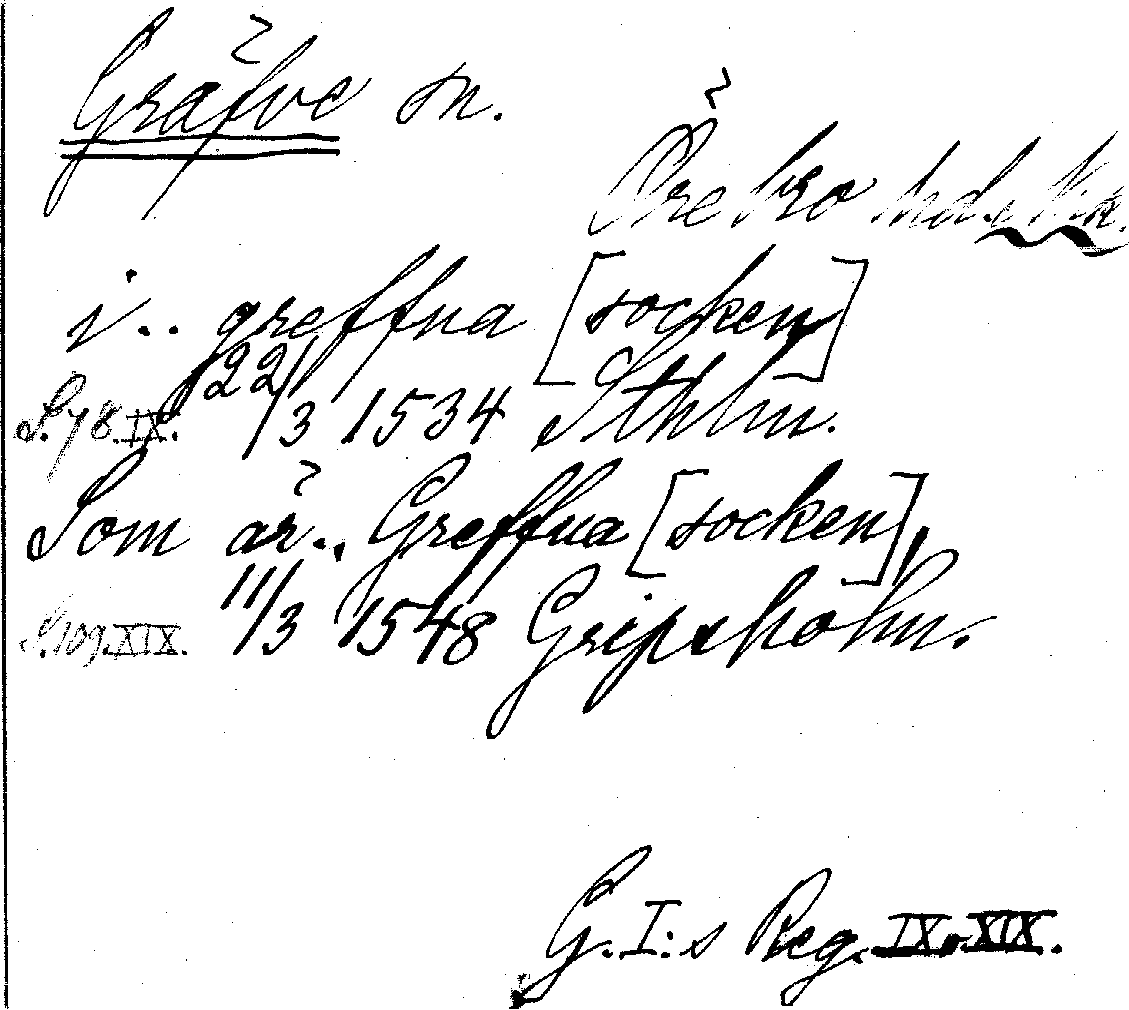 Gräfve sn.
Örebro hd. Nke.
i.. greffna [socken]
S. 78. IX. 22/3 1534 Sthlm.
Som är.. Greffna [socken],
S. 109. XIX. 11/3 1548 Gripsholm.
G. I:s Reg. IX o. XIX.